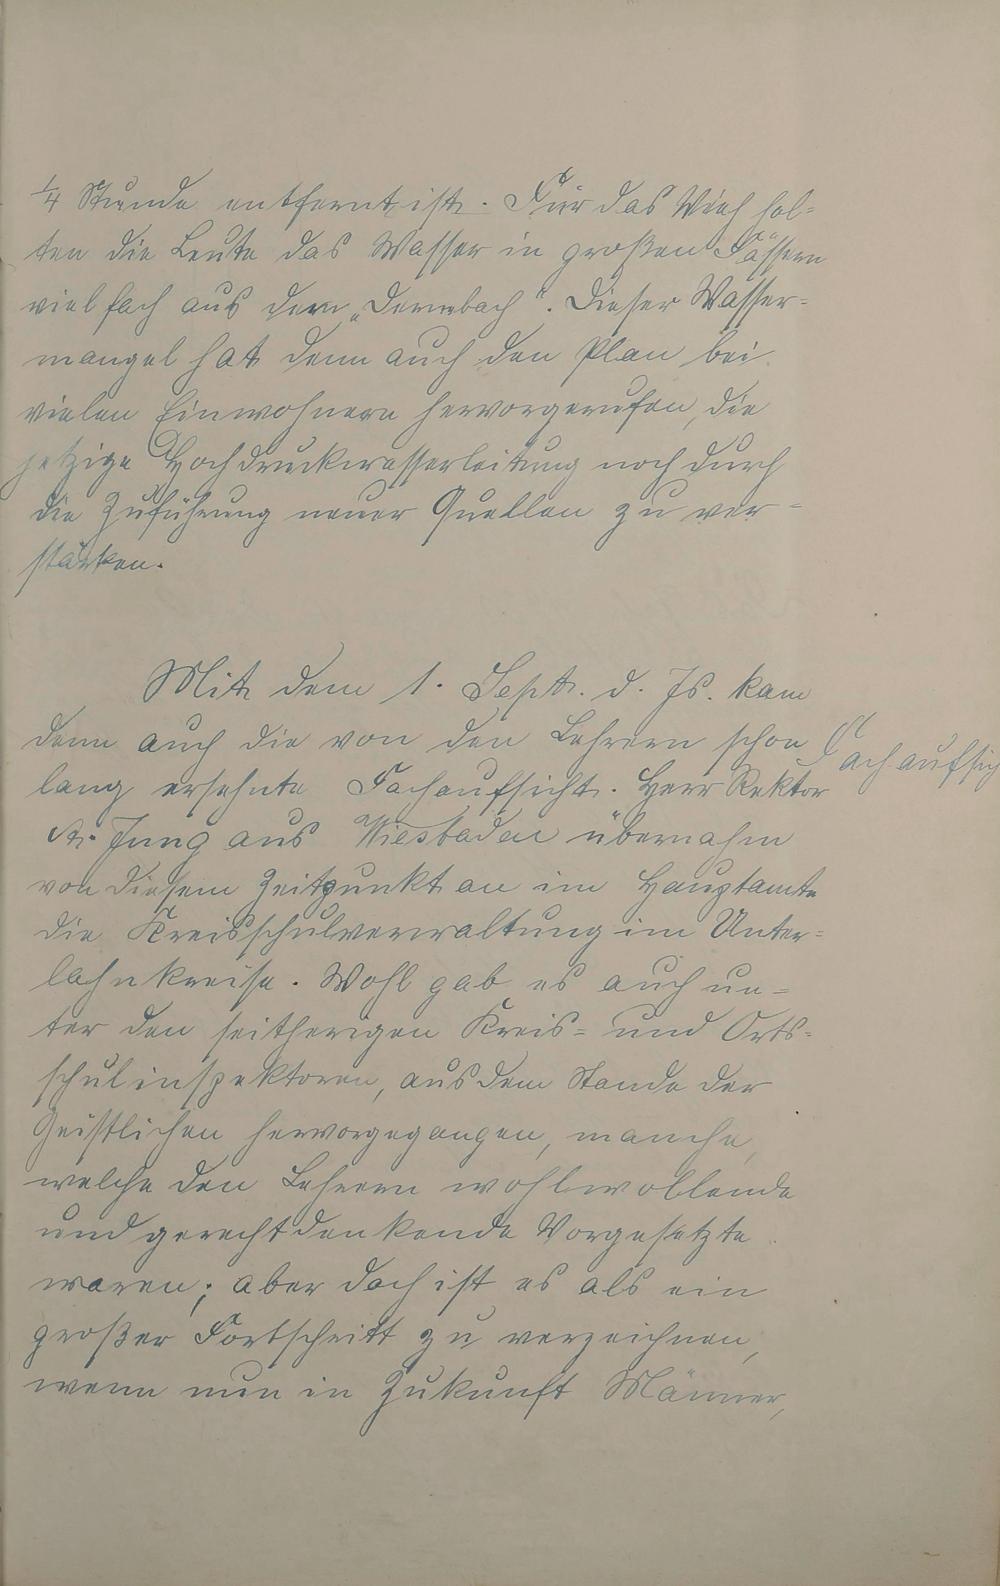 1/4 Stunde entfernt ist. Für das Vieh hol-
ten die Leute das Wasser in großen Fässern
vielfach aus dem „Dernbach“. Dieser Wasser-
mangel hat denn auch den Plan bei
vielen Einwohnern hervorgerufen, die
jetzige Hochdruckwasserleitung noch durch
die Zuführung neuer Quellen zu ver-
stärken.
Mit dem 1. Sept. d. Js. kam
denn auch die von den Lehrern schon
Fachaufsich
lang ersehnte Fachaufsicht. Herr Rektor
Jung aus Wiesbaden übernahm
von diesem Zeitpunkt an im Hauptamte
die Kreisschulverwaltung im Unter-
lahnkreise. Wohl gab es auch un-
ter den seitherigen Kreis- und Orts-
schulinspektoren, aus dem Stande der
Geistlichen hervorgegangen, manche,
welche den Lehrern wohlwollende
und gerecht denkende Vorgesetzte
waren; aber doch ist es als ein
großer Fortschritt zu verzeichnen,
wenn nun in Zukunft Männer,